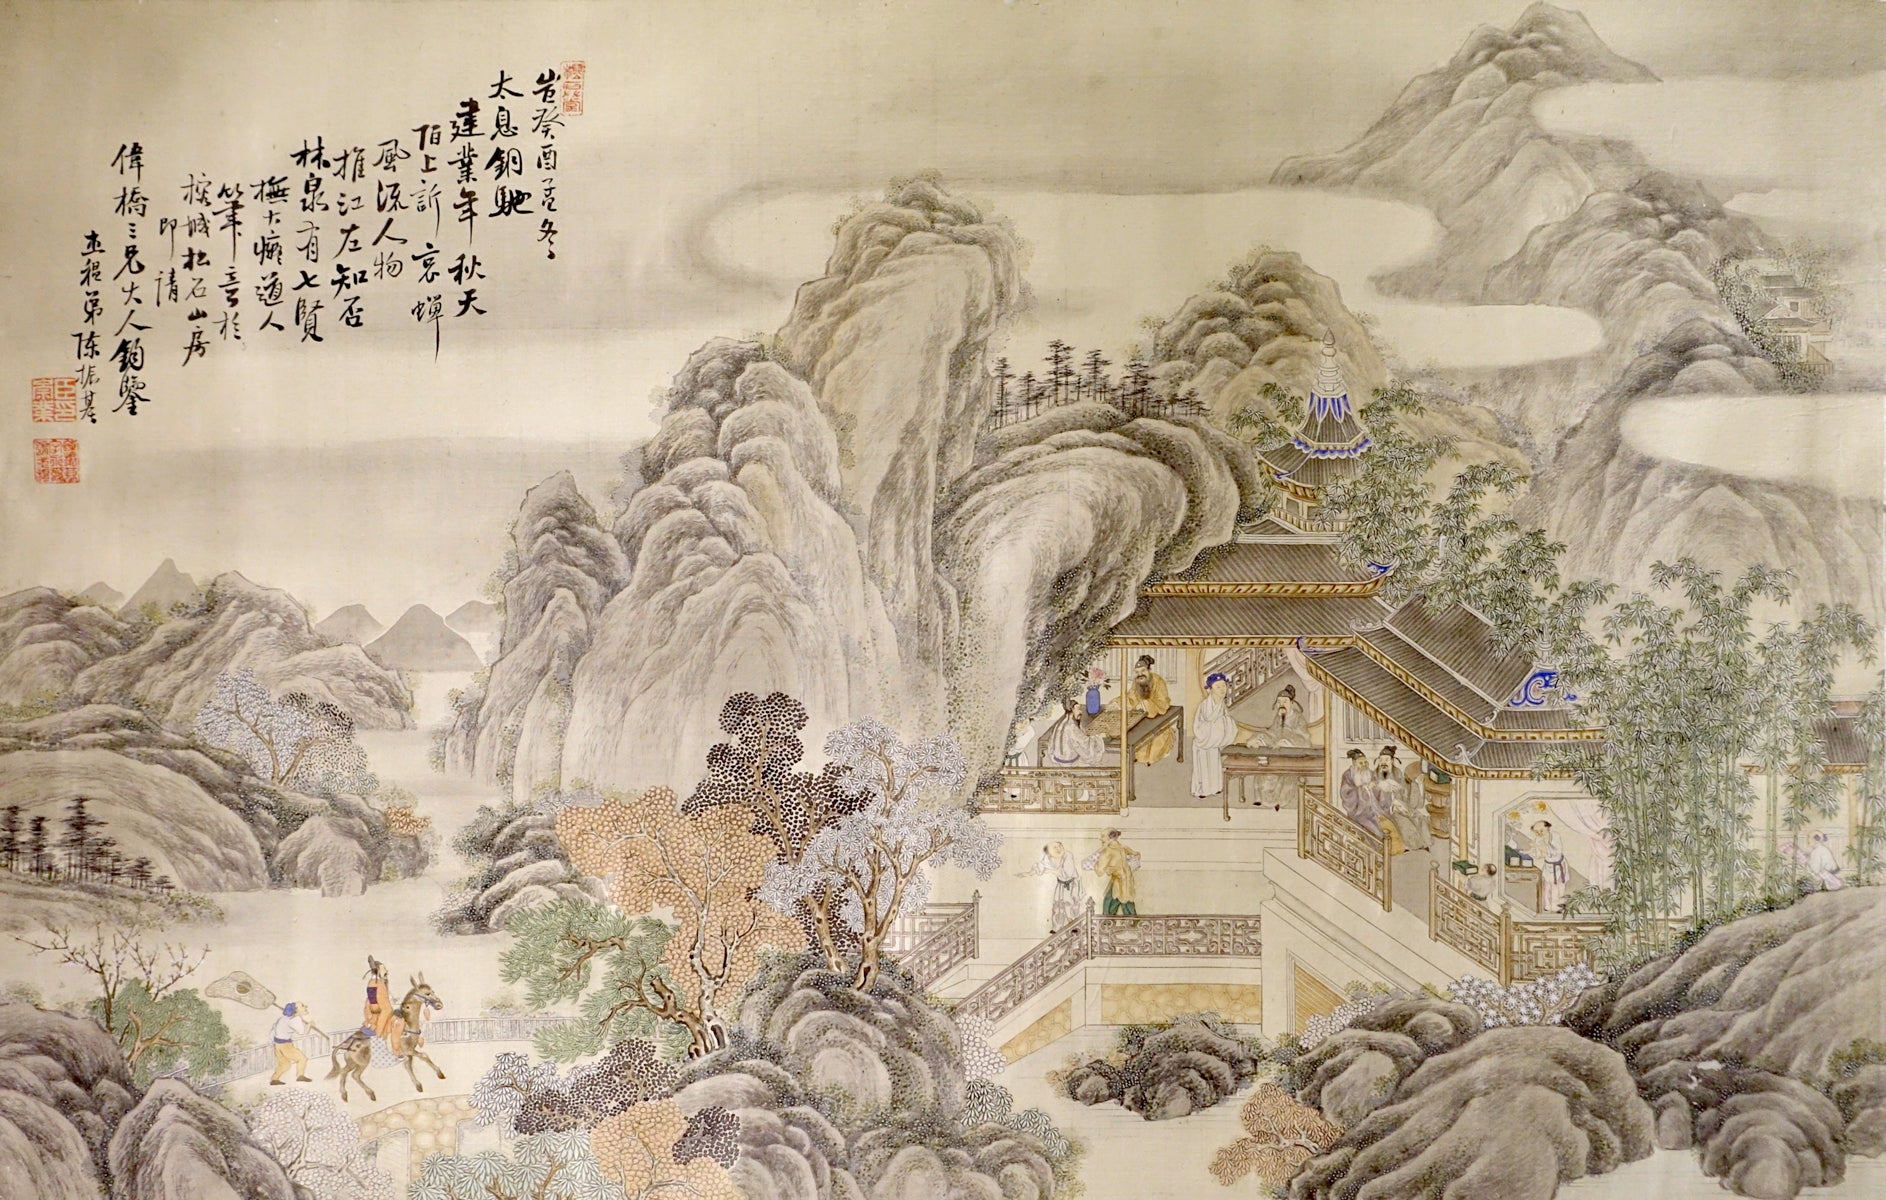 岩癸酉孟冬
太息銅駝
建業年秋天
陌上訴哀蟬
風流人物
推江左知否
林泉有七賢
橅大癡道人
筆意於
榕城松石山房
即請
偉橋三兄大人鈞鑒
世程弟陳振基